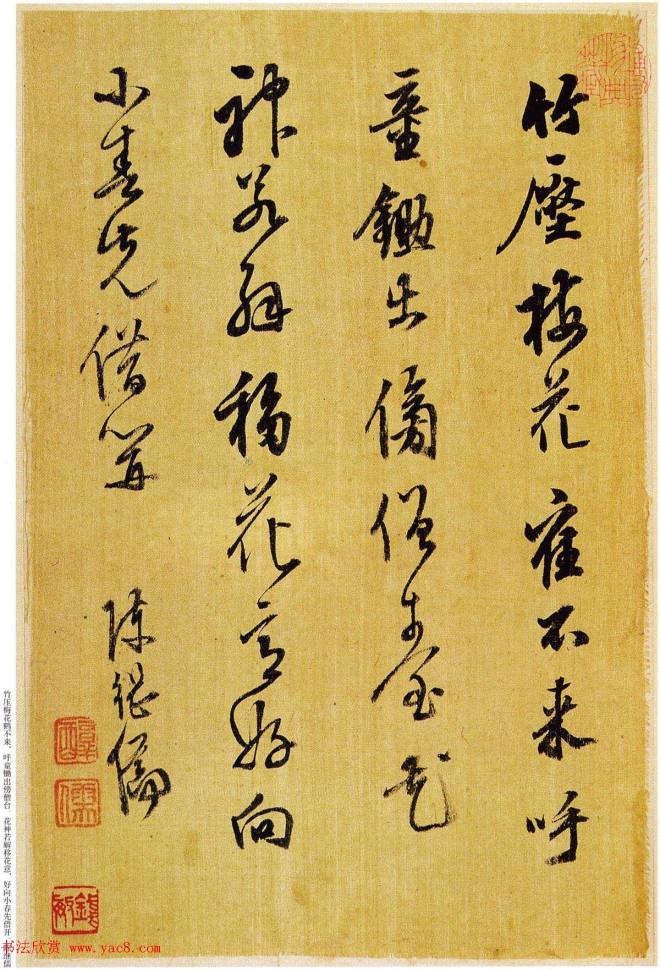 竹壓梅花寉不来呼
童鋤出傍僧臺花
神若解移花意好向
小春先借开
陳継儒
竹压梅花鹤不来，呼童锄出傍僧台。花神若解移花意，好向小春先借开。
书法欣赏 www.yac8.com